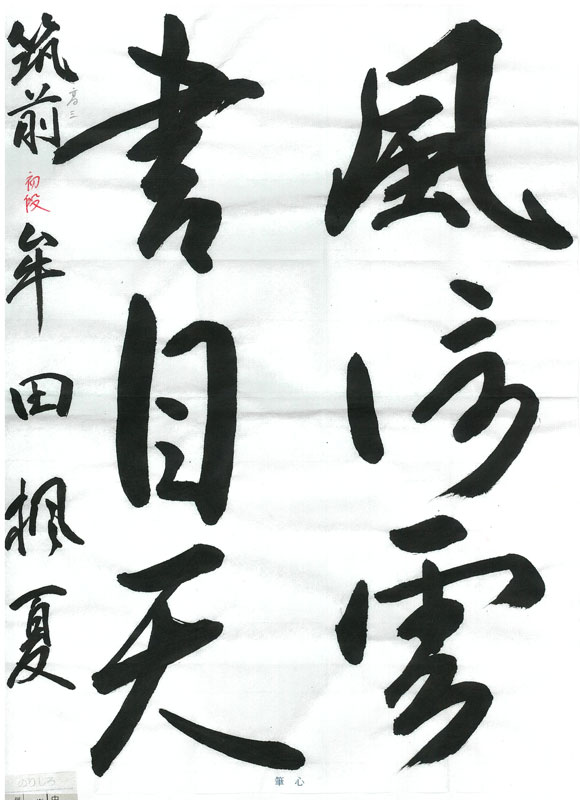 風信雲
書自天
筑前 牟田楓夏
高三
初段
筆心
のりしろ